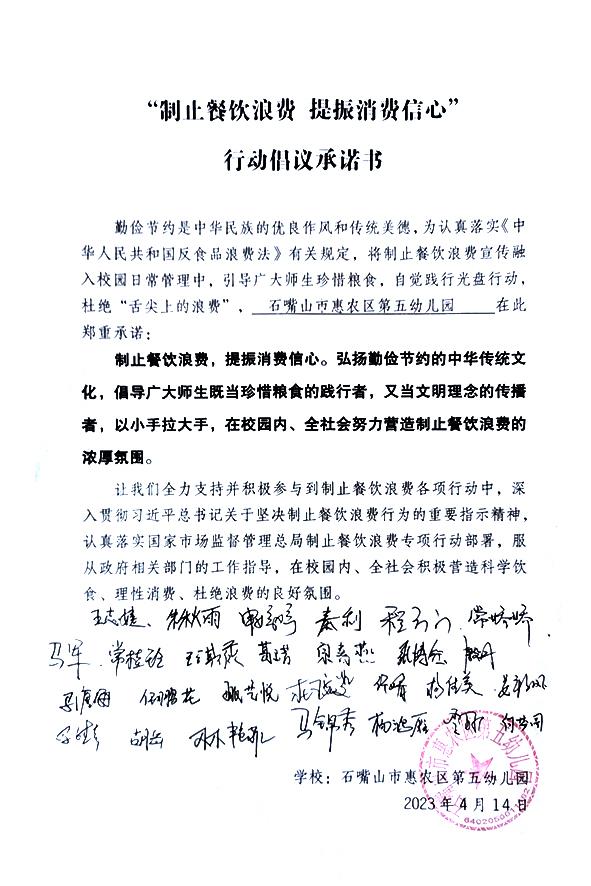 “制止餐饮浪费 提振消费信心”
行动倡议承诺书
勤俭节约是中华民族的优良作风和传统美德，为认真落实《中
华人民共和国反食品浪费法》有关规定，将制止餐饮浪费宣传融
入校园日常管理中，引导广大师生珍惜粮食，自觉践行光盘行动，
杜绝“舌尖上的浪费”， 石嘴山市惠农区第五幼儿园 在此
郑重承诺：
制止餐饮浪费，提振消费信心。弘扬勤俭节约的中华传统文
化，倡导广大师生既当珍惜粮食的践行者，又当文明理念的传播
者，以小手拉大手，在校园内、全社会努力营造制止餐饮浪费的
浓厚氛围。
让我们全力支持并积极参与到制止餐饮浪费各项行动中，深
入贯彻习近平总书记关于坚决制止餐饮浪费行为的重要指示精神，
认真落实国家市场监督管理总局制止餐饮浪费专项行动部署，服
从政府相关部门的工作指导，在校园内、全社会积极营造科学饮
食、理性消费、杜绝浪费的良好氛围。
朱秋雨 秦利 常娇娇
马军 常桂玲
胡岳 林艳 马锦秀
学校：石嘴山市惠农区第五幼儿园
2023年4月14日